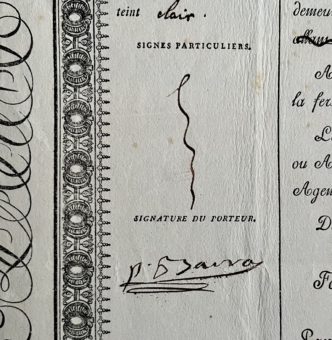 teint clair.
SIGNES PARTICULIERS.
SIGNATURE DU PORTEUR.
demeu
A
la fer
L
ou A
Agen
D
F